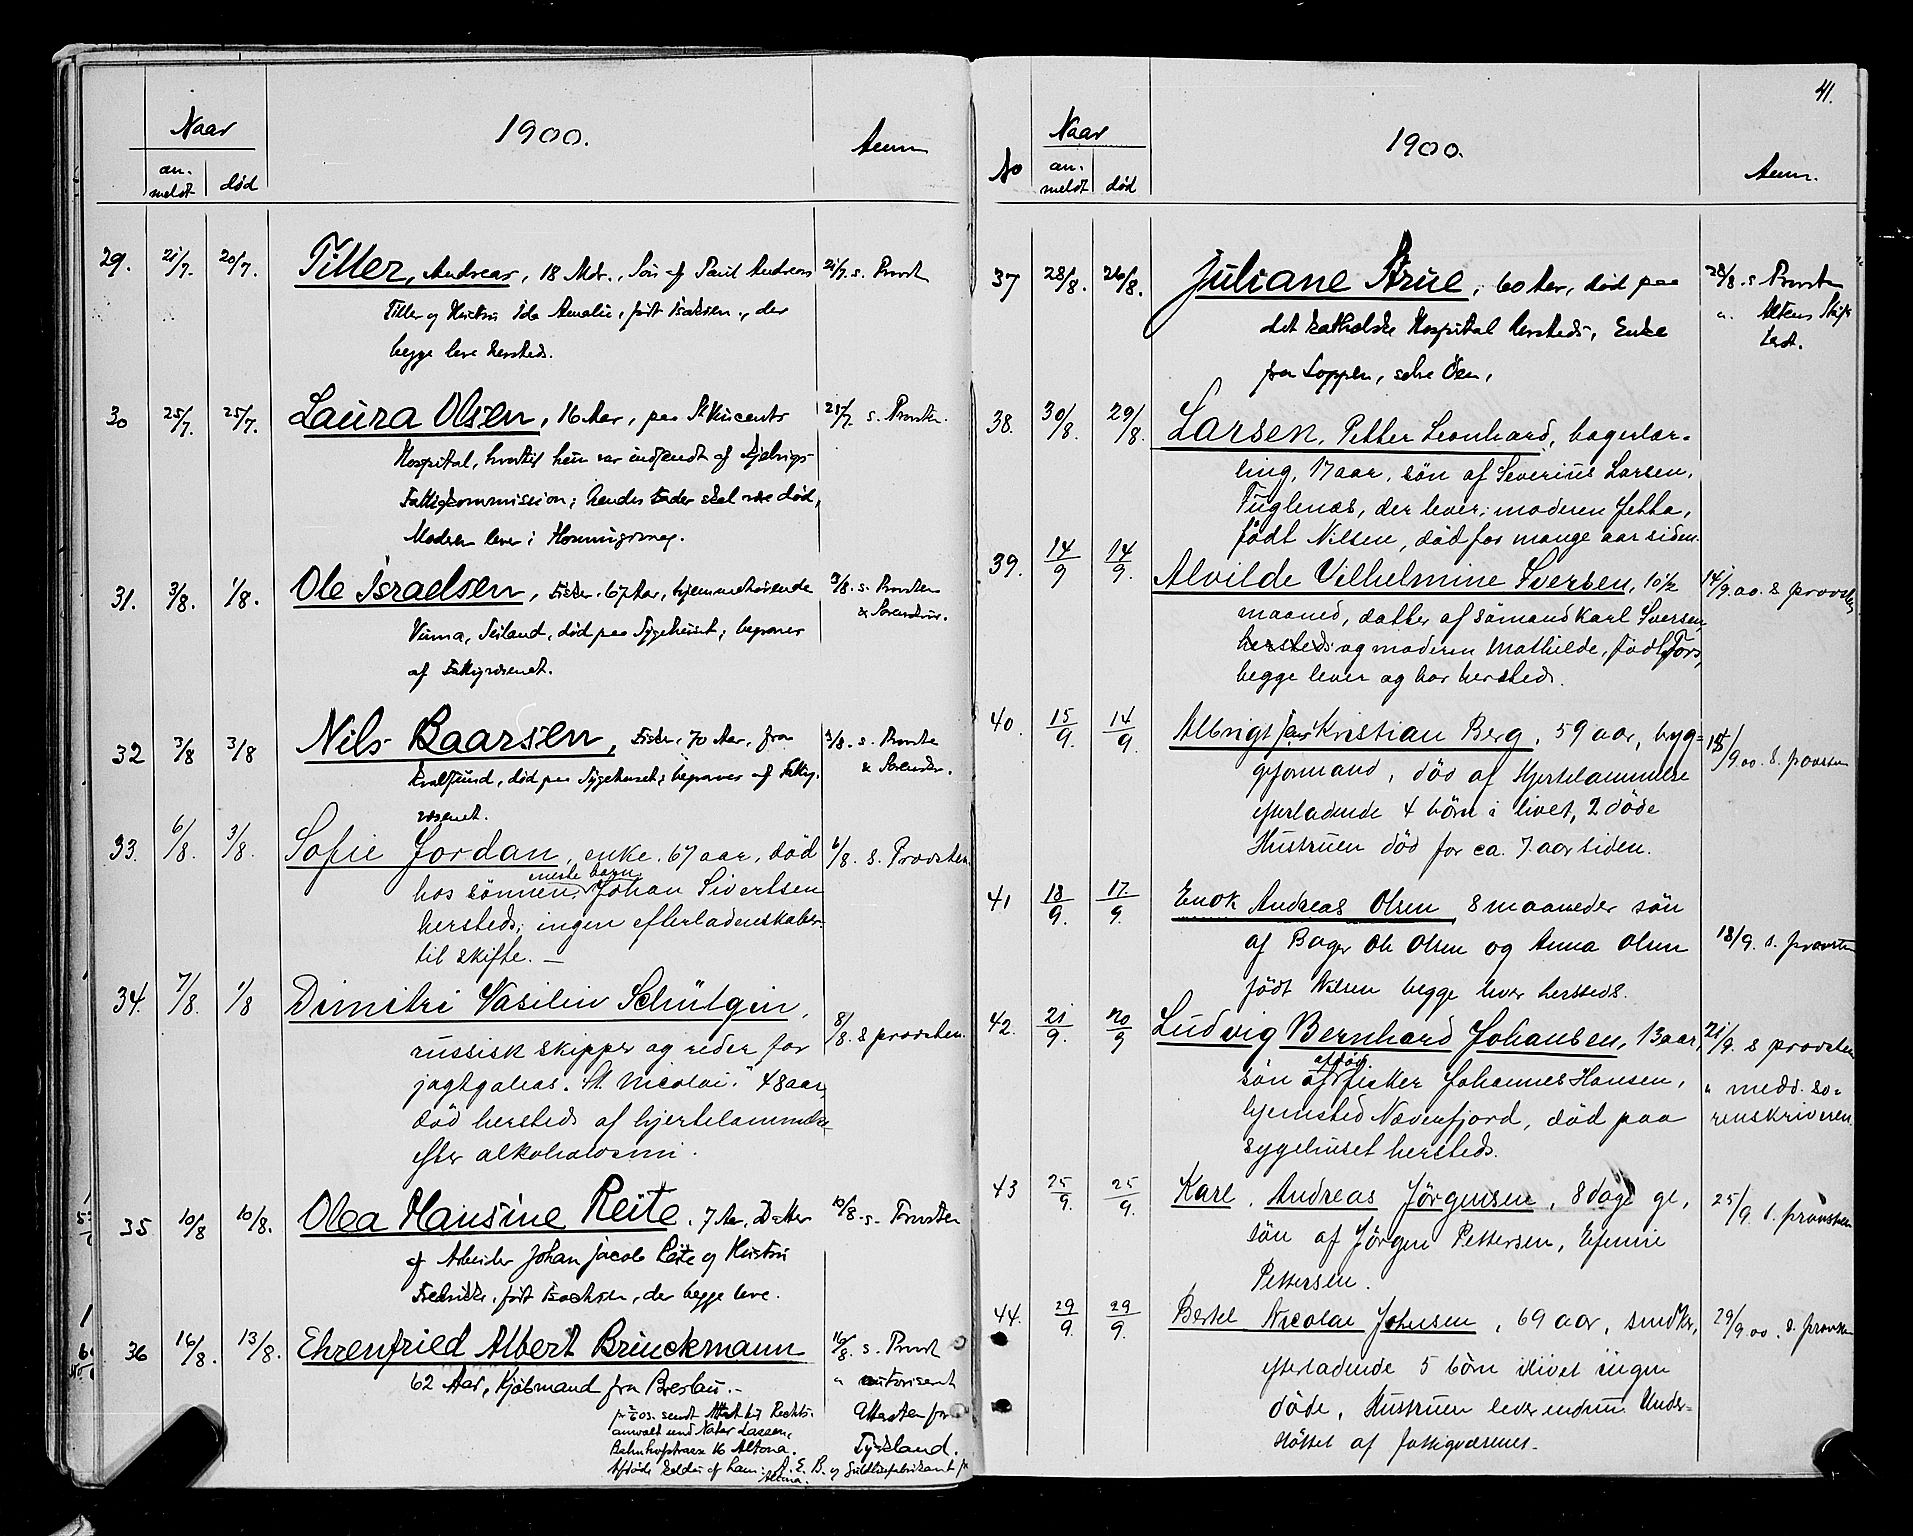 Naar
1900.
Anm
an-
meldt
död
29. 21/7. 20/7. Tiller, Andreas, 18 Mdr., Sön af Paul Andreas 21/7. s. Provst
Tiller og Hustru Ida Amalie, født Isaksen, der
begge leve hersteds.
30 25/7. 25/7. Laura Olsen, 16 Aar, paa St Vincents 25/7. s. Provsten.
Hospital, hvortil hun var indsendt af Kjelvigs
Fattigkommission; hendes Fader skal være död,
Moderen lever i Honningsvaag.
31. 3/8. 1/8. Ole Israelsen, Fisker. 67 Aar, hjemmehørende 3/8. s. Provsten
& Sorenskriv.
Seiland, død paa Sygehuset; begraves
af Fattigvæsenet.
32 3/8 3/8 Nils Baarsen, Fisker, 70 Aar, fra 3/8. s. Provsten
& Sorenskr.
Kvalsund, død paa Sygehuset; begraves af Fattig-
væsenet.
33. 6/8. 3/8. Sofie Jordan, enke. 67 aar, död 6/8. s. Provsten
hos sönnen Johan Sivertsen
hersteds; ingen efterladenskaber
til skifte. —
34. 7/8. 1/8 Dimitri Vasiliv Schütgin,
russisk skipper og reder for 8/8. s provsten.
jagtgalias. "St. Nicolai." 48 aar,
död hersteds af hjertelammelse
efter alkoholosmi.
35 10/8 10/8. Olea Hansine Reite, 7 Aar, Datter 10/8. s. Provsten
af Arbeider Johan Jacob Reite og Hustru
Fredrikke, født Isachsen, der begge leve.
36 16/8. 13/8. Ehrenfried Albert Brinckmann 16/8. s. Provst
62 Aar, Kjöbmand fra Breslau. - " notoriseret
sendt Attest til Rechts- Attesten for
anwalt und Notar Lassen, Tyskland.
Bahnhofstrasse 16 Altona.
A. E. B. og
Altona.
41.
No
Naar
1900.
Anm.
an-
meldt
död
37 28/8. 26/8. Juliane Strue, 60 Aar, död paa 28/8. s Provsten
det katholske Hospital hersteds, Enke " Altens Skif
fra Loppen, selve Öen,
38. 30/8. 29/8. Larsen, Petter Leonhard, bagerlær-
ling, 17 aar, sön af Severius Larsen,
Fuglenæs, der lever; moderen Jetta,
födt Nilsen, död for mange aar siden.
39. 14/9 14/9. Alvilde Vilhelmine Iversen, 10 1/2 14/9.00. s provsten
maaned, datter af sömand Karl Iversen,
hersteds og moderen Mathilde, födt Fors,
begge lever og bor hersteds.
40. 15/9. 14/9. Albrigt Jens Kristian Berg, 59 aar, byg= 15/9.00. s. provsten
geformand, död af Hjertelammelse
efterladende 4 börn i livet, 2 döde
Hustruen död for ca. 7 aar siden.
41 18/9. 17/9. Enok Andreas Olsen 8 maaneder sön
af Bager Ole Olsen og Anna Olsen 18/9. s. provsten
födt Nilsen begge lever hersteds.
42. 21/9. 20/9 Ludvig Bernhard Johansen, 13 aar, 21/9. s provsten
afdöd
sön af fisker Johannes Hansen, " medd. so-
hjemsted Næverfjord, död paa renskriveren.
sygehuset hersteds.
43 25/9. 25/9. Karl Andreas Jörgensen, 8 dage gl, 25/9. s. provsten
sön af Jörgen Pettersen, Efenie
Pettersen.
44. 29/9. 29/9. Bertel Nicolai Johnsen, 69 aar, snedker, 29/9 00. s. provsten
efterladende 5 börn ilivet ingen
döde, Hustruen lever endnu Under-
stöttet af fattigvæsenet.